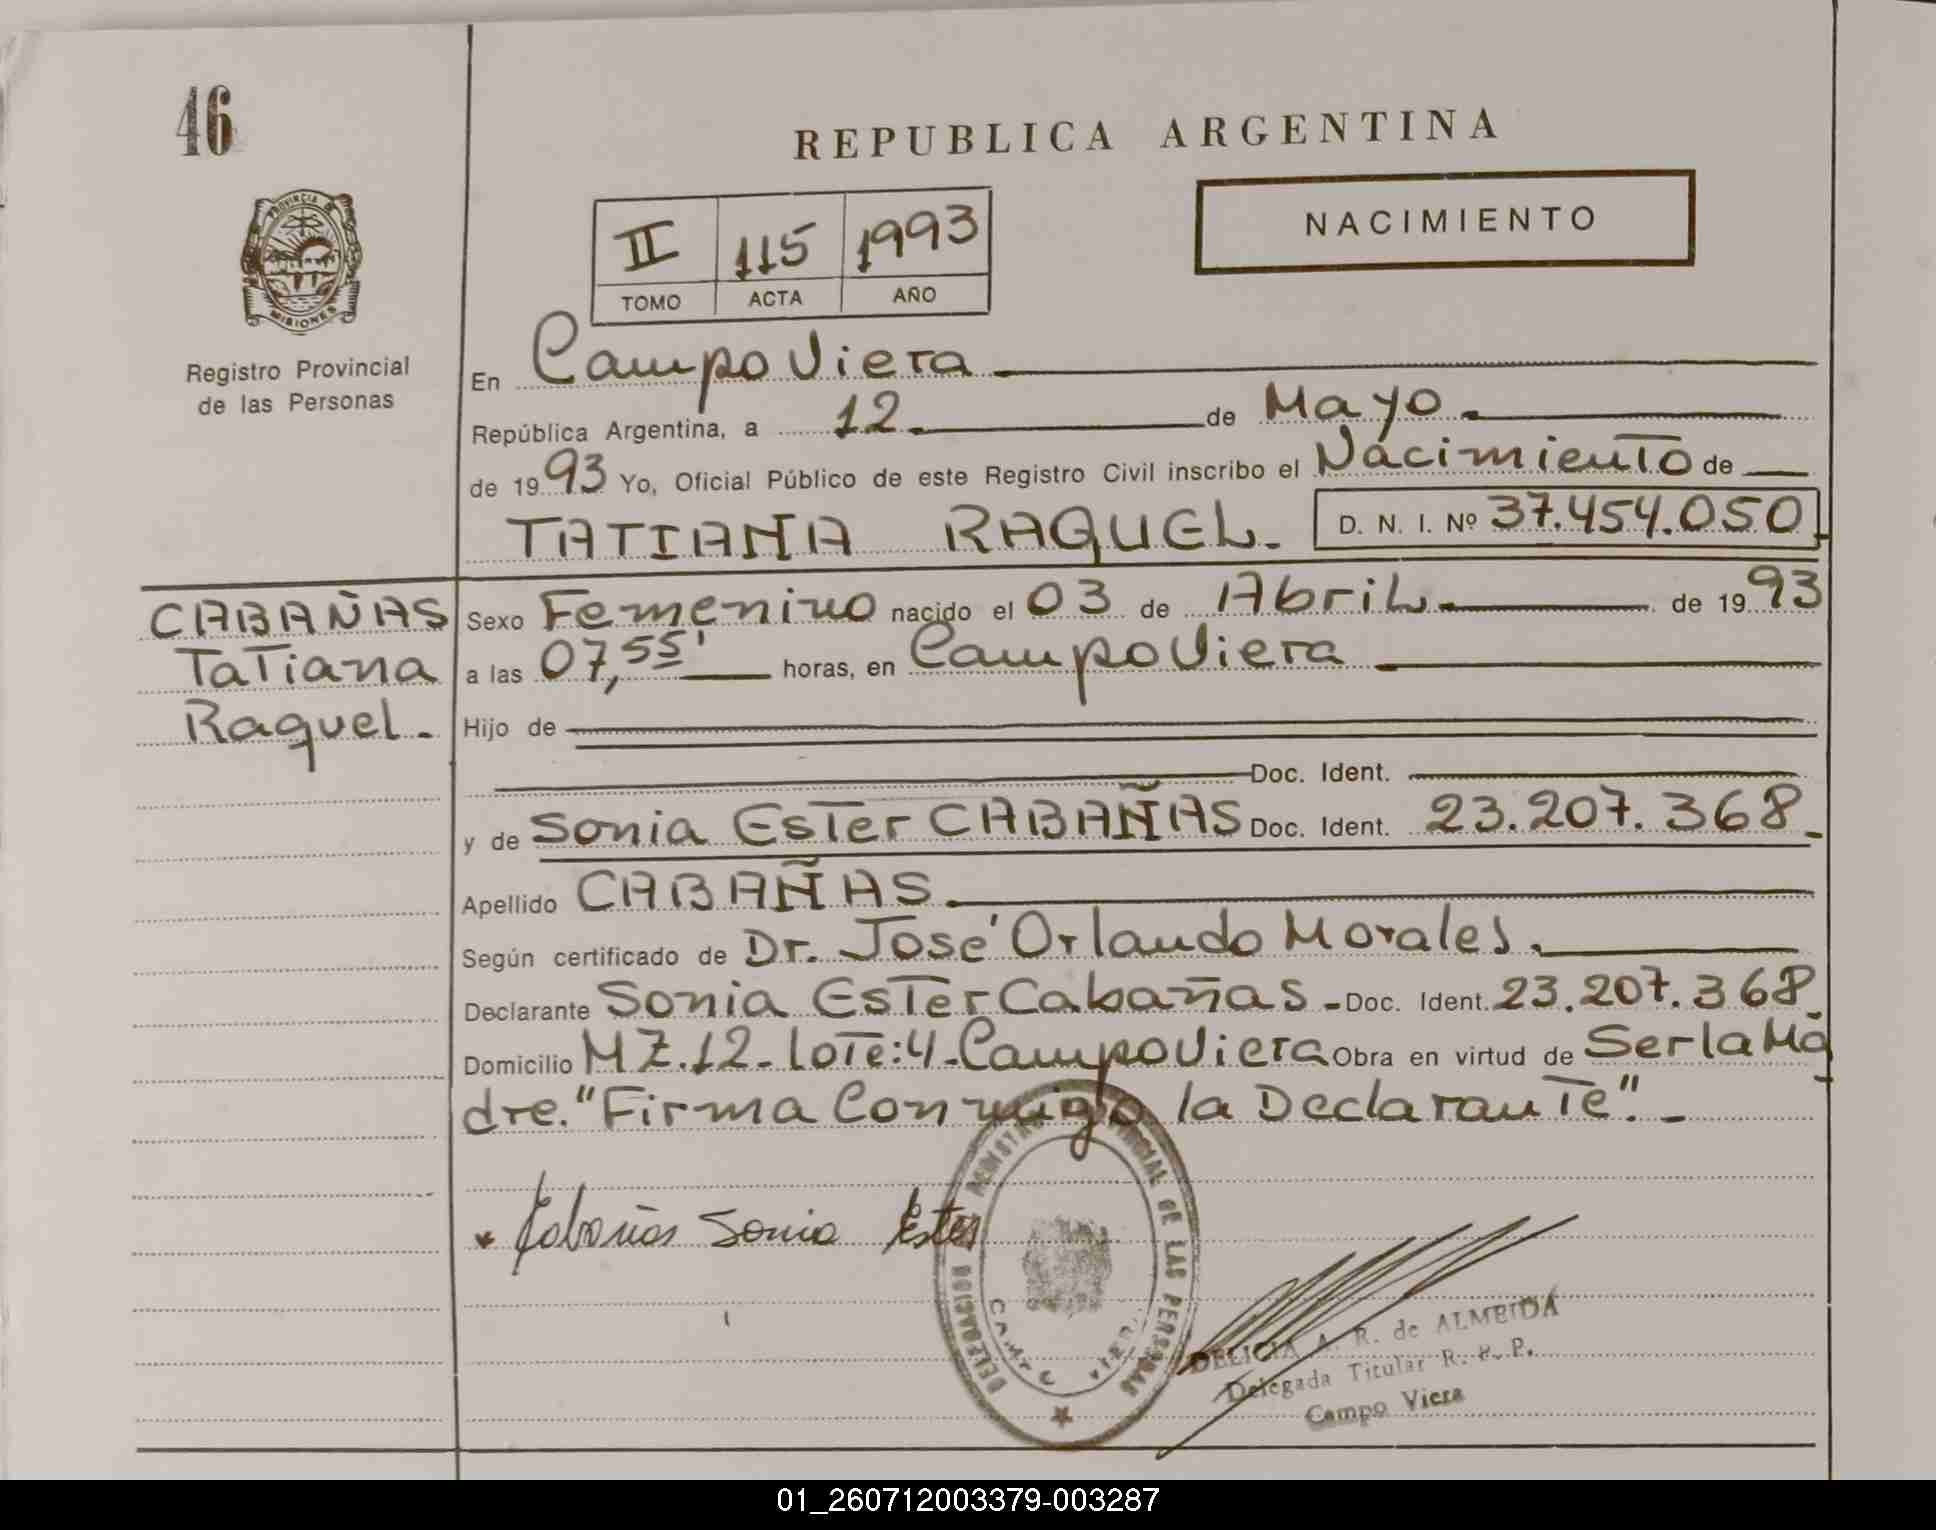 46
REPUBLICA ARGENTINA
PROVINCIA DE
MISIONES
Registro Provincial
de las Personas
II 115 1993
TOMO ACTA AÑO
NACIMIENTO
En Campo Viera
República Argentina, a 12 de Mayo
de 1993 Yo, Oficial Público de este Registro Civil inscribo el Nacimiento de
TATIANA RAQUEL. D. N. I. Nº 37.454.050
CABAÑAS
Tatiana
Raquel.
Sexo Femenino nacido el 03 de Abril de 1993
a las 07,55' horas, en Campo Viera
Hijo de
Doc. Ident.
y de Sonia Ester CABAÑAS Doc. Ident. 23.207.368
Apellido CABAÑAS
Según certificado de Dr. José Orlando Morales.
Declarante Sonia Ester Cabañas - Doc. Ident. 23.207.368
Domicilio MZ.12 - Lote:4 - Campo Viera Obra en virtud de Ser la Ma
dre. "Firma Conmigo la Declarante".-
Cabañas Sonia Ester
DELEGACION REGISTRO PROVINCIAL DE LAS PERSONAS
CAMPO VIERA
DELICIA A. R. de ALMEIDA
Delegada Titular R. P. P.
Campo Viera
01_260712003379-003287